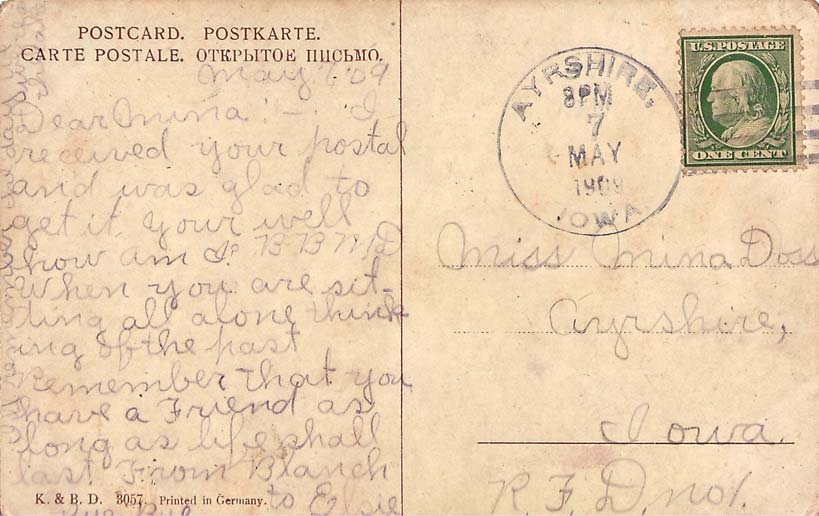 POSTCARD. POSTKARTE.
CARTE POSTALE. ОТКРЫТОЕ ПИСЬМО.
May 7 '09
Dear Mina:- I
received your postal
and was glad to
get it. Your well
how am I. B-B-N-D
When you are sit-
ting all alone think
ing of the past
Remember that you
have a Friend as
long as life shall
last From Blanch
to Elsie
Bye Bye
K. & B. D. 3057. Printed in Germany.
AYRSHIRE,
8PM
7
MAY
1909
IOWA.
U.S. POSTAGE
ONE CENT
Miss Mina Doss
Ayrshire,
Iowa.
R. F. D. no 1.